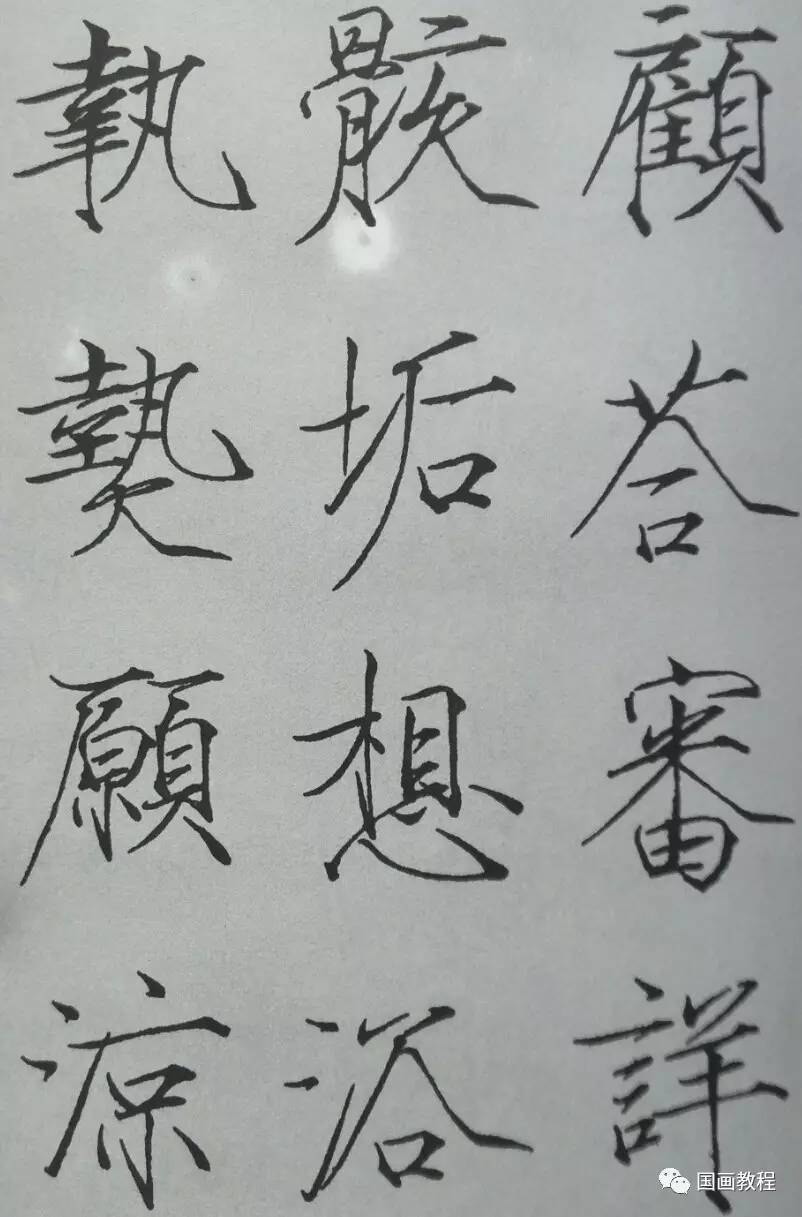 顧荅審詳
骸垢想浴
執熱願涼
国画教程